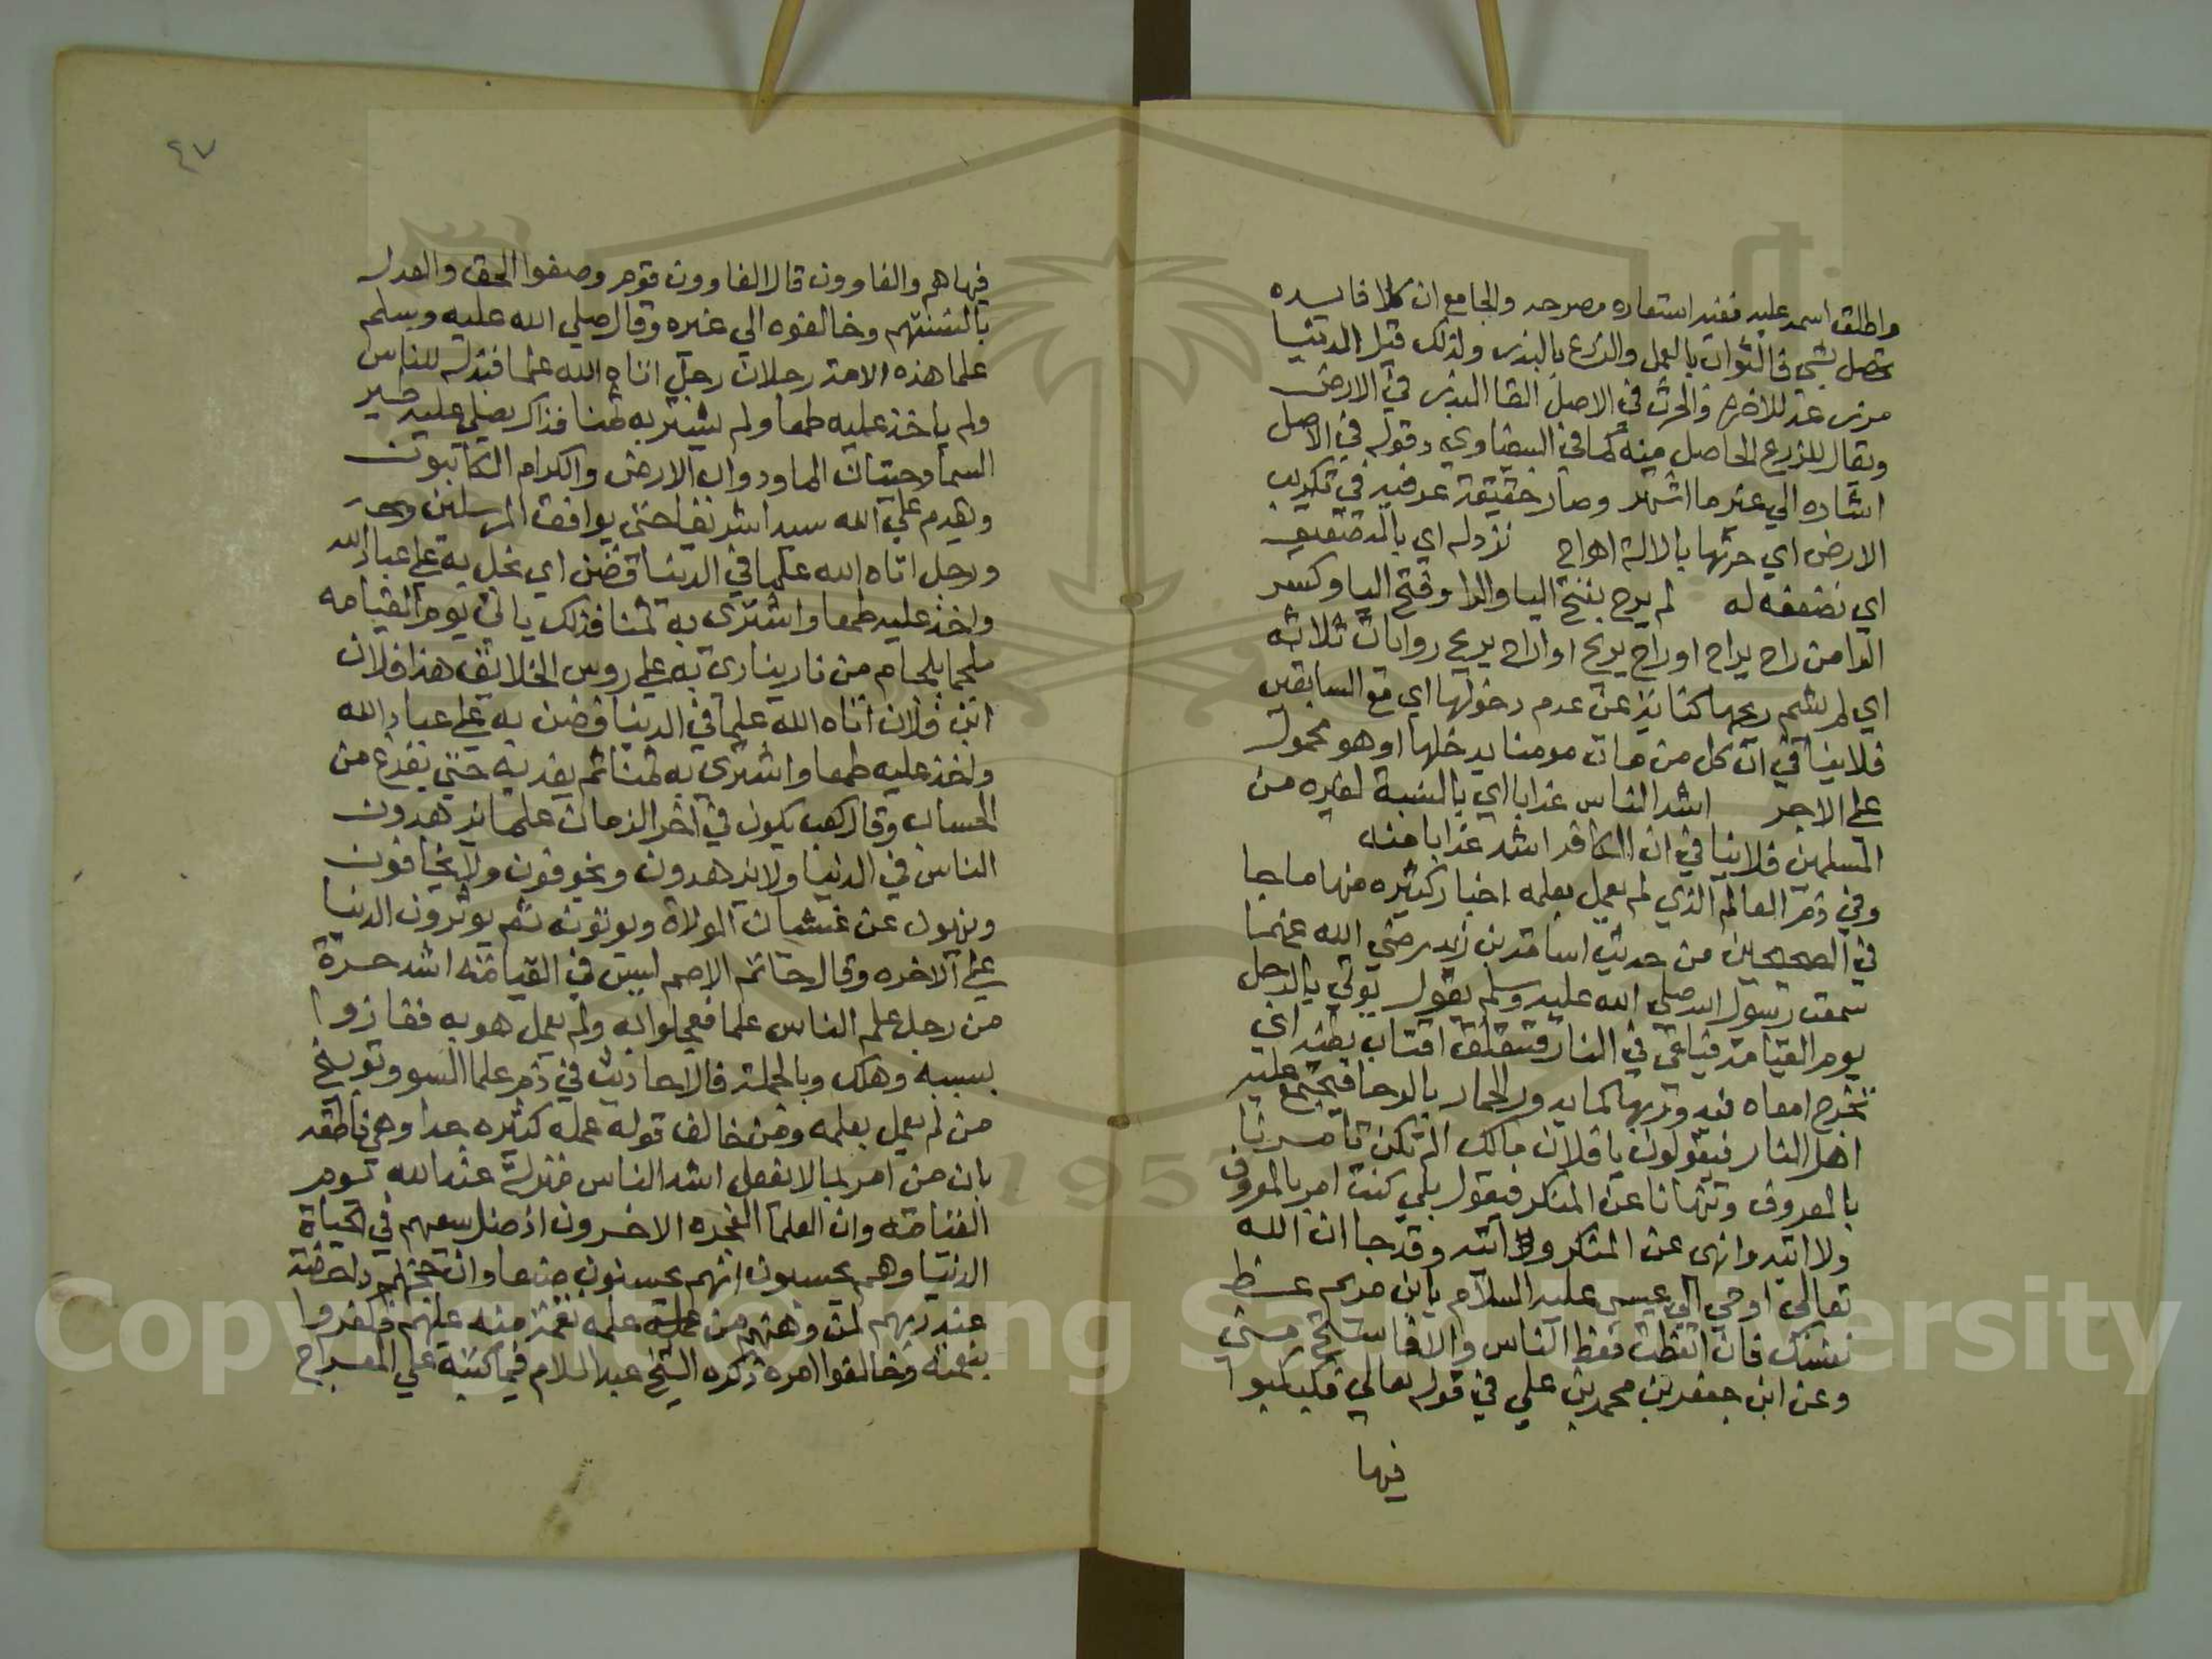 واطلق اسمه عليه ففيه استعاره مصرحه والجامع ان كلا فايده
تحصل بشي فالثواب بالعمل والزرع بالبذر ولذلك قيل الدنيا
مزرعة للاخره والحرث في الاصل القا البذر في الارض
ويقال للزرع الحاصل منه كما في البيضاوي وقوله في الاصل
اشاره الي غير ما اشتهر وصار حقيقة عرفيه في تكريب
الارض اي حرثها بالالة اهواح نزد له اي بالتضعيف
اي نضعفه له لم يرح بفتح اليا والرا وفتح اليا وكسر
الرا من راح يراح اوراح يريح اواراح يريح روايات ثلاثه
اي لم يشم ريحها كناية عن عدم دخولها اي مع السابقين
فلا ينافي ان كل من مات مومنا يدخلها او هو محمول
علي الاجر اشد الناس عذابا اي بالنسبة لغيره من
المسلمين فلا ينافي ان الكافر اشد عذابا منه
وفي ذم العالم الذي لم يعمل بعلمه اخبار كثيره منها ما جا
في الصحيحين من حديث اسامة بن زيد رضي الله عنهما
سمعت رسول الله صلي الله عليه وسلم يقول يوتي بالرجل
يوم القيامة فيلقي في النار فتندلق اقتاب بطنه اي
تخرج امعاه فيدور بها كما يدور الحمار بالرحا فيجتمع عليه
اهل النار فيقولون يا فلان مالك الم تكن تامرنا
بالمعروف وتنهانا عن المنكر فيقول بلي كنت امر بالمعروف
ولا اتيه وانهي عن المنكر واتيه وقد جا ان الله
تعالي اوحي الي عيسي عليه السلام يا ابن مريم عظ
نفسك فان اتعظت فعظ الناس والا فاستحي مني
وعن ابن جعفر بن محمد بن علي في قوله تعالي فكبكبوا
فيها
٤٧
فيها هم والغاوون قال الغاوون قوم وصفوا الحق والعدل
بالسنتهم وخالفوه الي غيره وقال صلي الله عليه وسلم
علما هذه الامة رجلان رجل اتاه الله علما فبذله للناس
ولم ياخذ عليه طمعا ولم يشتر به ثمنا فذاك يصلي عليه طير
السما وحيتان الما ودواب الارض والكرام الكاتبون
ويقدم علي الله سيدا شريفا حتي يوافق المرسلين
ورجل اتاه الله علما في الدنيا فضن اي بخل به علي عباد الله
واخذ عليه طمعا واشتري به ثمنا فذلك ياتي يوم القيامه
ملجما بلجام من نار ينادي به علي روس الخلائق هذا فلان
ابن فلان اتاه الله علما في الدنيا فضن به علي عباد الله
واخذ عليه طمعا واشتري به ثمنا ثم يعذبه حتي يفرغ من
الحساب وقال كعب يكون في اخر الزمان علما يزهدون
الناس في الدنيا ولا يزهدون ويخوفون ولا يخافون
وينهون عن غشيان الولاة وياتونه ثم يوثرون الدنيا
علي الاخره وقال حاتم الاصم ليس في القيامه اشد حسرة
من رجل علم الناس علما فعملوا به ولم يعمل هو به ففازوا
بسببه وهلك وبالجملة فالاحاديث في ذم علما السو وتوبيخ
من لم يعمل بعلمه ومن خالف قوله عمله كثيره جدا وهي ناطقه
بان من امر بما لا يفعل اشد الناس منزلة عند الله يوم
القيامه وان العلما الفجره الاخسرون اذ ضل سعيهم في الحياة
الدنيا وهم يحسبون انهم يحسنون صنعا وان حجتهم داحضة
عند ربهم لمن وهبهم من علمه نعمة منه عليهم فكفروا
بنعمته وخالفوا امره ذكره الشيخ عبد السلام فيما كتبه علي المعراج
Copyright © King Saud University
1957